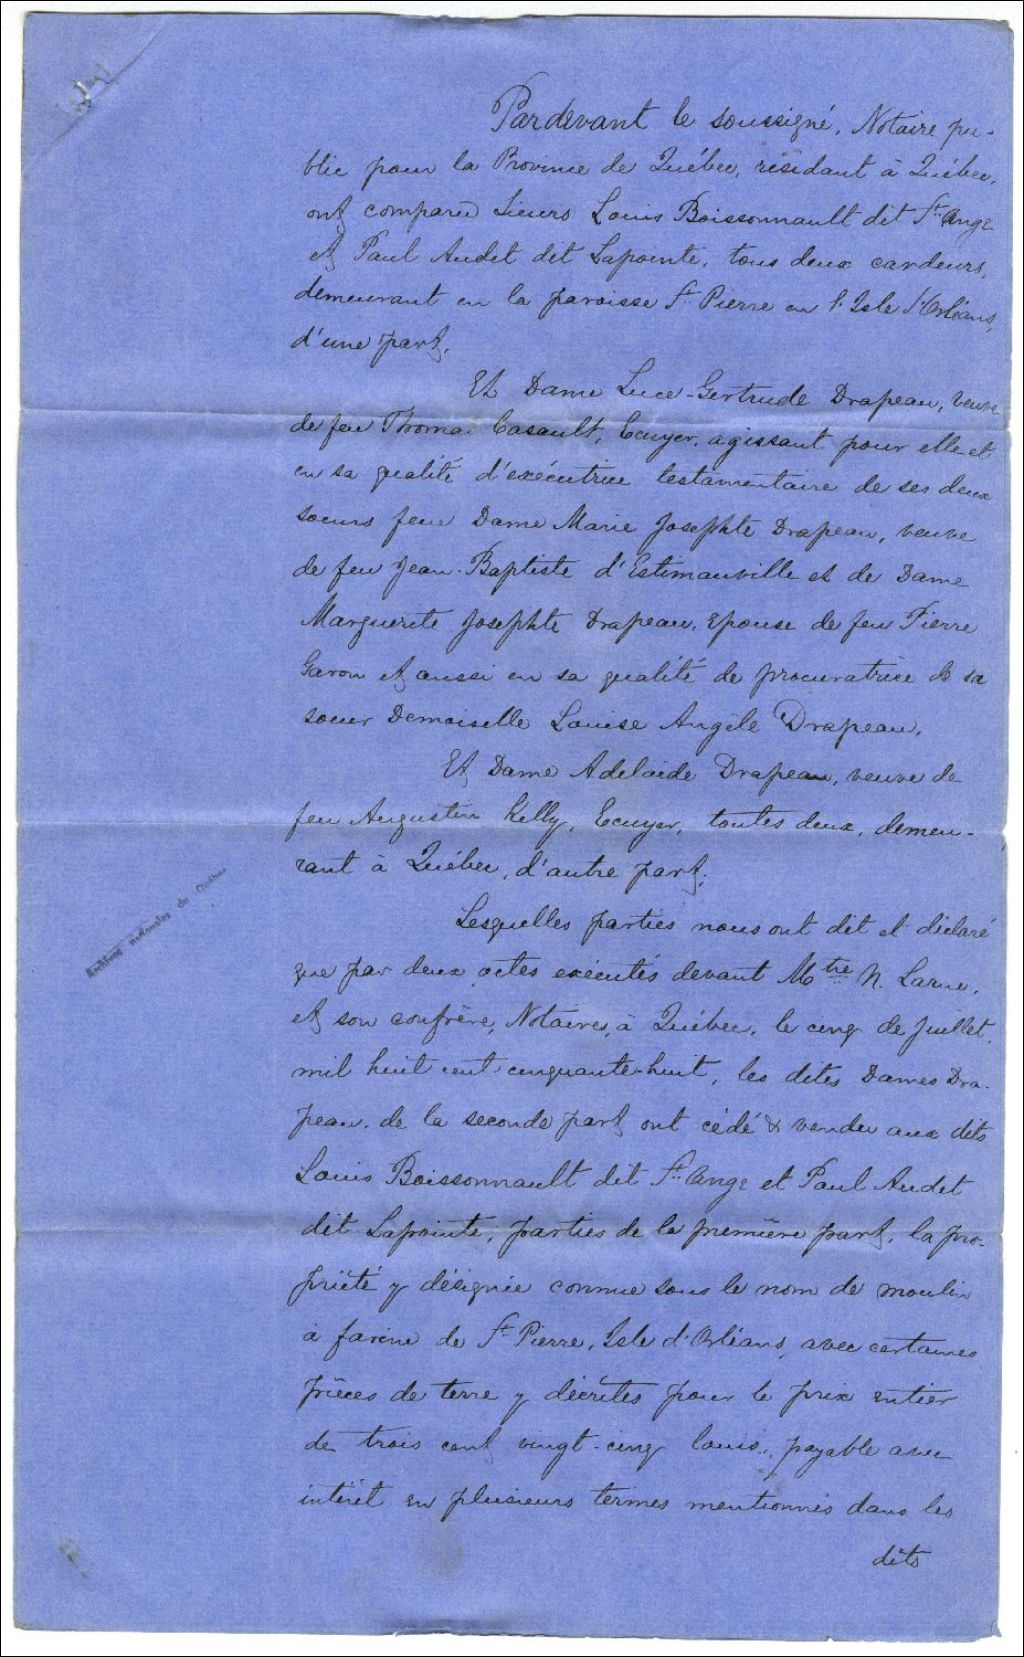 Pardevant le soussigné, Notaire pu-
blic pour la Province de Québec, résidant à Québec,
ont comparu Sieurs Louis Boissonnault dit St. Ange
et Paul Audet dit Lapointe, tous deux cardeurs,
demeurant en la paroisse St. Pierre en l'Isle d'Orléans,
d'une part.
Et Dame Luce-Gertrude Drapeau, veuve
de feu Thomas Casault, Ecuyer, agissant pour elle et
en sa qualité d'exécutrice testamentaire de ses deux
soeurs feue Dame Marie Josephte Drapeau, veuve
de feu Jean-Baptiste d'Estimauville et de Dame
Marguerite Josephte Drapeau, Epouse de feu Pierre
Garon et aussi en sa qualité de procuratrice de sa
soeur Demoiselle Louise Angèle Drapeau.
Et Dame Adelaïde Drapeau, veuve de
feu Augustin Kelly, Ecuyer, toutes deux, demeu-
rant à Québec, d'autre part;
Lesquelles parties nous ont dit et déclaré
que par deux actes exécutés devant Mtre N. Larue,
et son confrère, Notaires, à Québec, le cinq de Juillet,
mil huit cent cinquante-huit, les dites Dames Dra-
peau, de la seconde part ont cédé & vendu aux dits
Louis Boissonnault dit St. Ange et Paul Audet
dit Lapointe, parties de la première part, la pro-
priété y désignée connue sous le nom de moulin
à farine de St. Pierre, Isle d'Orléans, avec certaines
pièces de terre y décrites pour le prix entier
de trois cent vingt-cinq louis, payable avec
intérêt en plusieurs termes mentionnés dans les
dits
Archives nationales du Québec